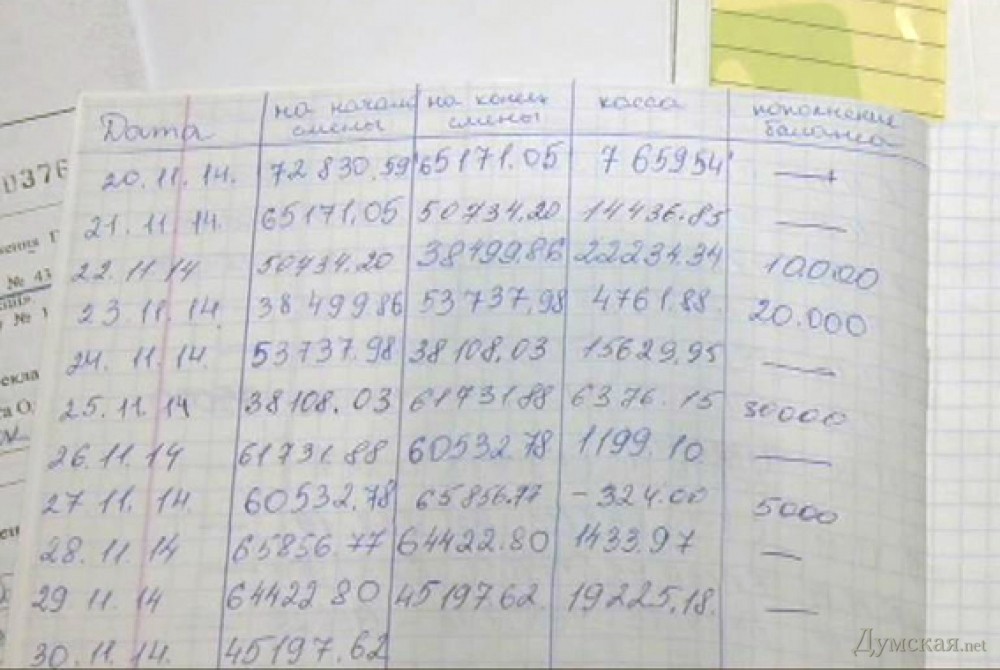 Дата на начало смены на конец смены касса пополнение баланса
20.11.14. 72830.59 65171.05 7659 54
21.11.14. 65171.05 50734.20 14436.85 —
22.11.14 50434.20 38499.86 22234.34 10000
23.11.14. 38499.86 53737.98 4761.88. 20.000
24.11.14. 53737.98 38108.03 15629.95 —
25.11.14 38108.03 61731.88 6376.15 30000
26.11.14 61731.88 60532.78 1199.10 —
27 11.14. 60532.78 65856.77 -324.00 5000
28.11.14 65856.77 64422.80 1433.97 —
29 11.14 64422 80 45197.62. 19225.18. —
30.11.14. 45197.62
0376
№ 43
№ 1
екла
Думская.net